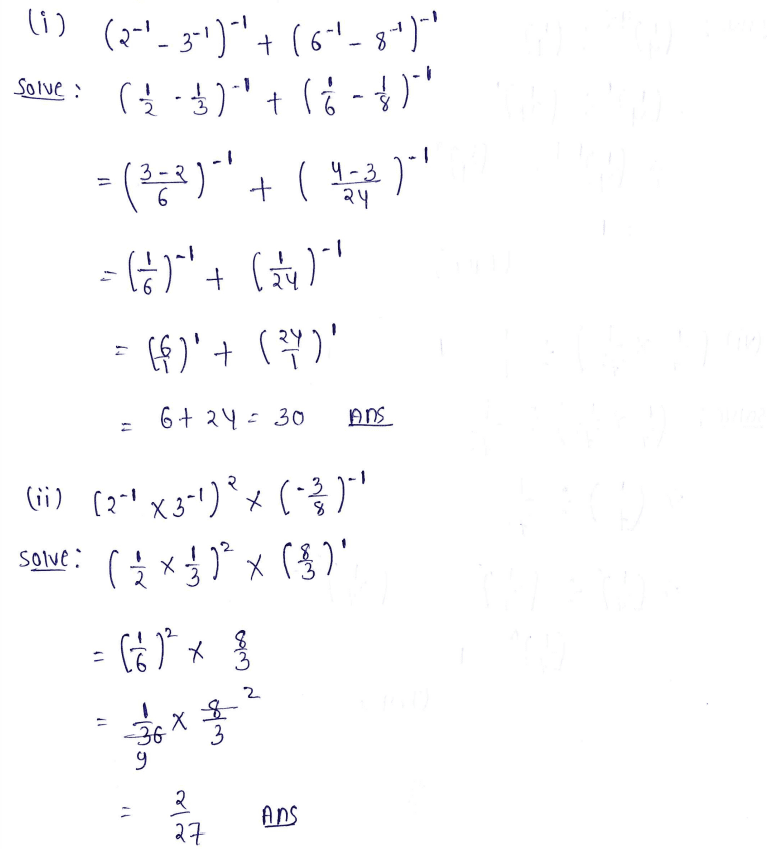 (i) (2⁻¹ - 3⁻¹)⁻¹ + (6⁻¹ - 8⁻¹)⁻¹
Solve: (1/2 - 1/3)⁻¹ + (1/6 - 1/8)⁻¹
= (3-2/6)⁻¹ + (4-3/24)⁻¹
= (1/6)⁻¹ + (1/24)⁻¹
= (6/1)¹ + (24/1)¹
= 6 + 24 = 30 Ans
(ii) (2⁻¹ × 3⁻¹)² × (-3/8)⁻¹
Solve: (1/2 × 1/3)² × (8/3)¹
= (1/6)² × 8/3
= 1/36 × 8/3 2
9
= 2/27 Ans